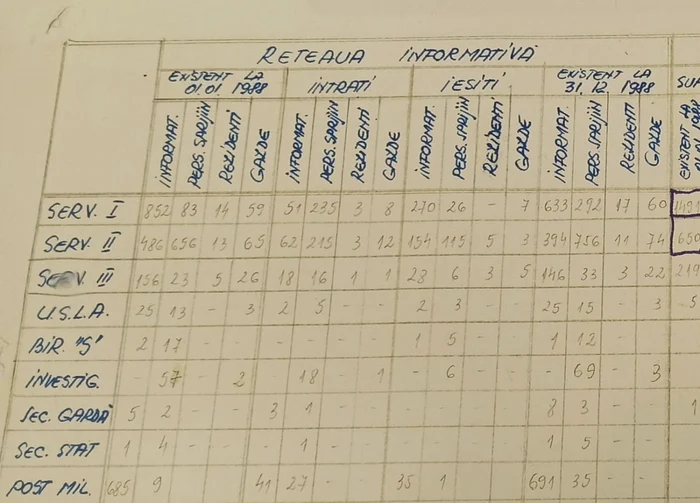 REȚEAUA INFORMATIVĂ
EXISTENT LA 01.01.1988 INTRAȚI IEȘIȚI EXISTENT LA 31.12.1988
INFORMAT. PERS.SPRIJIN REZIDENȚI GAZDE INFORMAT. PERS.SPRIJIN REZIDENȚI GAZDE INFORMAT. PERS.SPRIJIN REZIDENȚI GAZDE INFORMAT. PERS.SPRIJIN REZIDENȚI GAZDE EXISTENT LA
SERV. I 852 83 14 59 51 235 3 8 270 26 - 7 633 292 17 60 1491
SERV. II 486 656 13 65 62 215 3 12 154 115 5 3 394 756 11 74 650
SERV. III 156 23 5 26 18 16 1 1 28 6 3 5 146 33 3 22 219
U.S.L.A. 25 13 - 3 2 5 - - 2 3 - - 25 15 - 3 5
BIR. "S" 2 17 - - - - - - 1 5 - - 1 12 - -
INVESTIG. - 57 - 2 - 18 - 1 - 6 - - - 69 - 3
SEC. GARDĂ 5 2 - - 3 1 - - - - - - 8 3 - - 1
SEC. STAT 1 4 - - - 1 - - - - - - 1 5 - -
POST MIL. 685 9 - - 41 27 - - 35 1 - - 691 35 - -